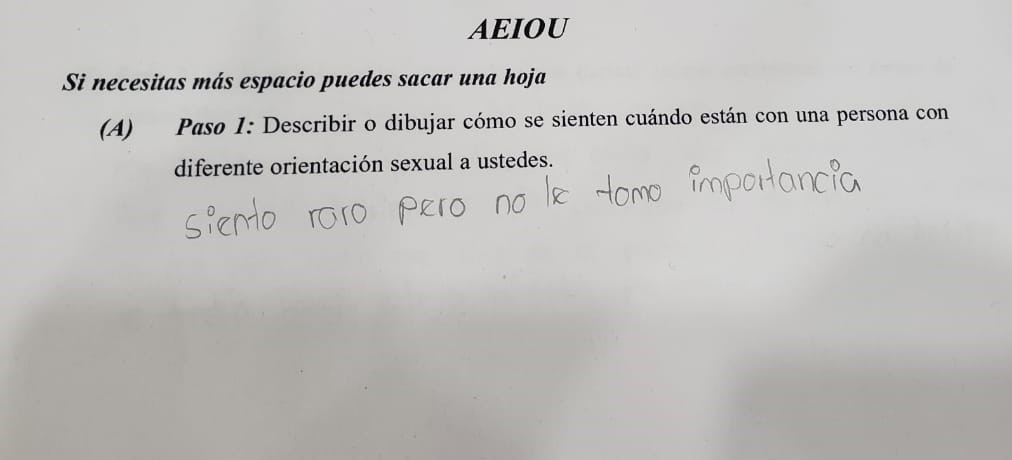 AEIOU
Si necesitas más espacio puedes sacar una hoja
(A) Paso 1: Describir o dibujar cómo se sienten cuándo están con una persona con
diferente orientación sexual a ustedes.
siento raro pero no le tomo importancia